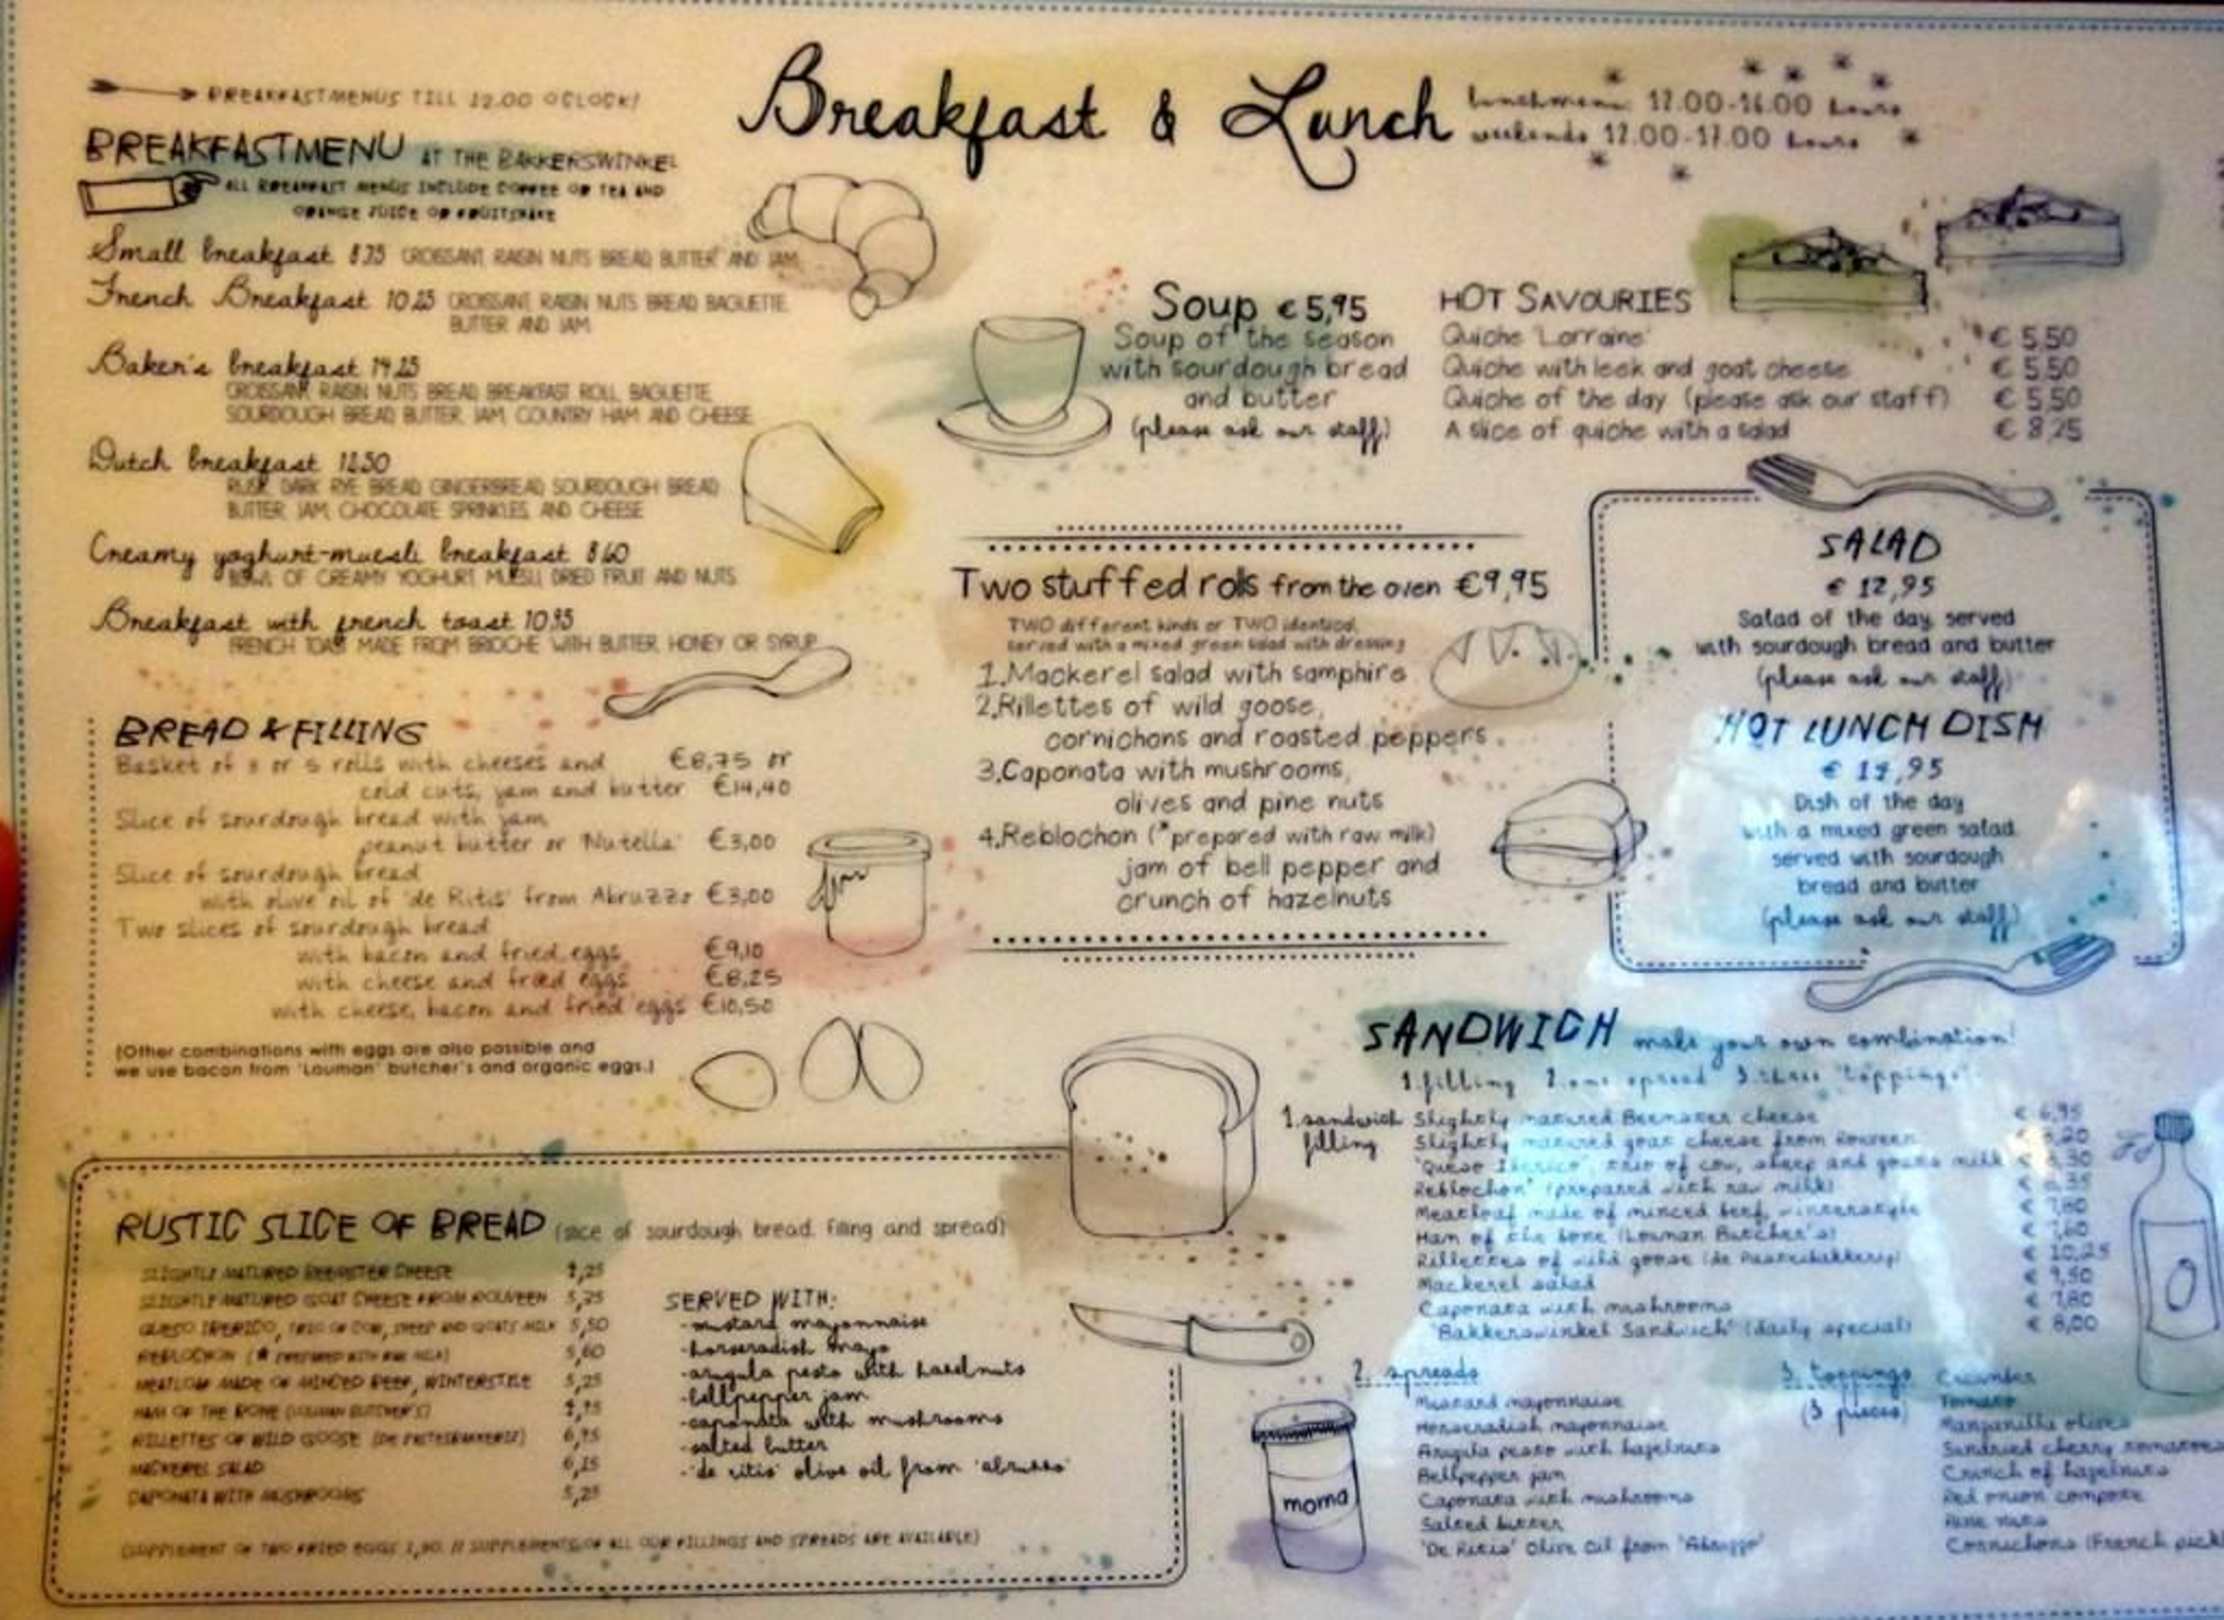 BREAKFASTMENUS TILL 12.00 OCLOCK!
BREAKFASTMENU AT THE BAKKERSWINKEL
ALL BREAKFAST MENUS INCLUDE COFFEE OR TEA AND
ORANGE JUICE OR FRUITSHAKE
Small breakfast 8.75 CROISSANT RAISIN NUTS BREAD BUTTER AND JAM
French Breakfast 10.25 CROISSANT RAISIN NUTS BREAD BAGUETTE
BUTTER AND JAM
Baker's breakfast 14.25
CROISSANT RAISIN NUTS BREAD BREAKFAST ROLL BAGUETTE
SOURDOUGH BREAD BUTTER JAM COUNTRY HAM AND CHEESE
Dutch breakfast 12.50
RUSK DARK RYE BREAD GINGERBREAD SOURDOUGH BREAD
BUTTER JAM CHOCOLATE SPRINKLES AND CHEESE
Creamy yoghurt-muesli breakfast 8.60
BOWL OF CREAMY YOGHURT MUESLI DRIED FRUIT AND NUTS
Breakfast with french toast 10.95
FRENCH TOAST MADE FROM BRIOCHE WITH BUTTER HONEY OR SYRUP
BREAD & FILLING
Basket of 3 or 5 rolls with cheeses and €8,75 or
cold cuts, jam and butter €14,40
Slice of sourdough bread with jam
peanut butter or 'Nutella' €3,00
Slice of sourdough bread
with olive oil of 'de Ritis' from Abruzzo €3,00
Two slices of sourdough bread
with bacon and fried eggs €9,10
with cheese and fried eggs €8,25
with cheese, bacon and fried eggs €10,50
(Other combinations with eggs are also possible and
we use bacon from 'Louman' butcher's and organic eggs.)
jam
Breakfast & Lunch
lunchmenu 12.00-16.00 hours
weekends 12.00-17.00 hours
Soup €5,95
Soup of the season
with sourdough bread
and butter
(please ask our staff)
HOT SAVOURIES
Quiche 'Lorraine' €5.50
Quiche with leek and goat cheese €5.50
Quiche of the day (please ask our staff) €5.50
A slice of quiche with a salad €8.25
Two stuffed rolls from the oven €9,95
TWO different kinds or TWO identical,
served with a mixed green salad with dressing
1.Mackerel salad with samphire
2.Rillettes of wild goose,
cornichons and roasted peppers
3.Caponata with mushrooms,
olives and pine nuts
4.Reblochon (*prepared with raw milk)
jam of bell pepper and
crunch of hazelnuts
SALAD
€ 12,95
Salad of the day, served
with sourdough bread and butter
(please ask our staff)
HOT LUNCH DISH
Dish of the day
with a mixed green salad
served with sourdough
bread and butter
(please ask our staff)
RUSTIC SLICE OF BREAD (slice of sourdough bread, filling and spread)
SLIGHTLY MATURED BEEMSTER CHEESE
SLIGHTLY MATURED GOAT CHEESE FROM ROUVEEN 5,25
QUESO IBERICO, TRIO OF COW, SHEEP AND GOATS MILK 5,50
REBLOCHON (* PREPARED WITH RAW MILK) 5,60
MEATLOAF MADE OF MINCED BEEF, WINTERSTYLE 5,25
HAM OF THE BONE (LOUMAN BUTCHER'S)
RILLETTES OF WILD GOOSE 6,95
MACKEREL SALAD 6,15
CAPONATA WITH MUSHROOMS 5,25
(SUPPLEMENT OF TWO FRIED EGGS 1,90 // SUPPLEMENTS OF ALL OUR FILLINGS AND SPREADS ARE AVAILABLE)
SERVED WITH:
-mustard mayonnaise
-horseradish mayo
-arugula pesto with hazelnuts
-bellpepper jam
-caponata with mushrooms
-salted butter
-'de ritis' olive oil from 'abruzzo'
SANDWICH make your own combination!
1.filling 2.one spread 3.three 'toppings'
1.sandwich filling
Slightly matured Beemster cheese € 6,95
Slightly matured goat cheese from Rouveen
'Queso Iberico', trio of cow, sheep and goats milk
Reblochon* (prepared with raw milk)
Meatloaf made of minced beef, winterstyle € 7,80
Ham of the bone (Louman Butcher's)
Rillettes of wild goose € 10,25
Mackerel salad € 9,50
Caponata with mushrooms € 7,80
'Bakkerswinkel Sandwich' (daily special) € 8,00
2. spreads
Mustard mayonnaise
Horseradish mayonnaise
Arugula pesto with hazelnuts
Bellpepper jam
Caponata with mushrooms
Salted butter
'De Ritis' Olive Oil from 'Abruzzo'
3. toppings
(3 pieces)
Cucumber
Tomato
Manzanilla olives
Sundried cherry tomatoes
Crunch of hazelnuts
Red onion compote
Pine nuts
Cornichons (French
moma